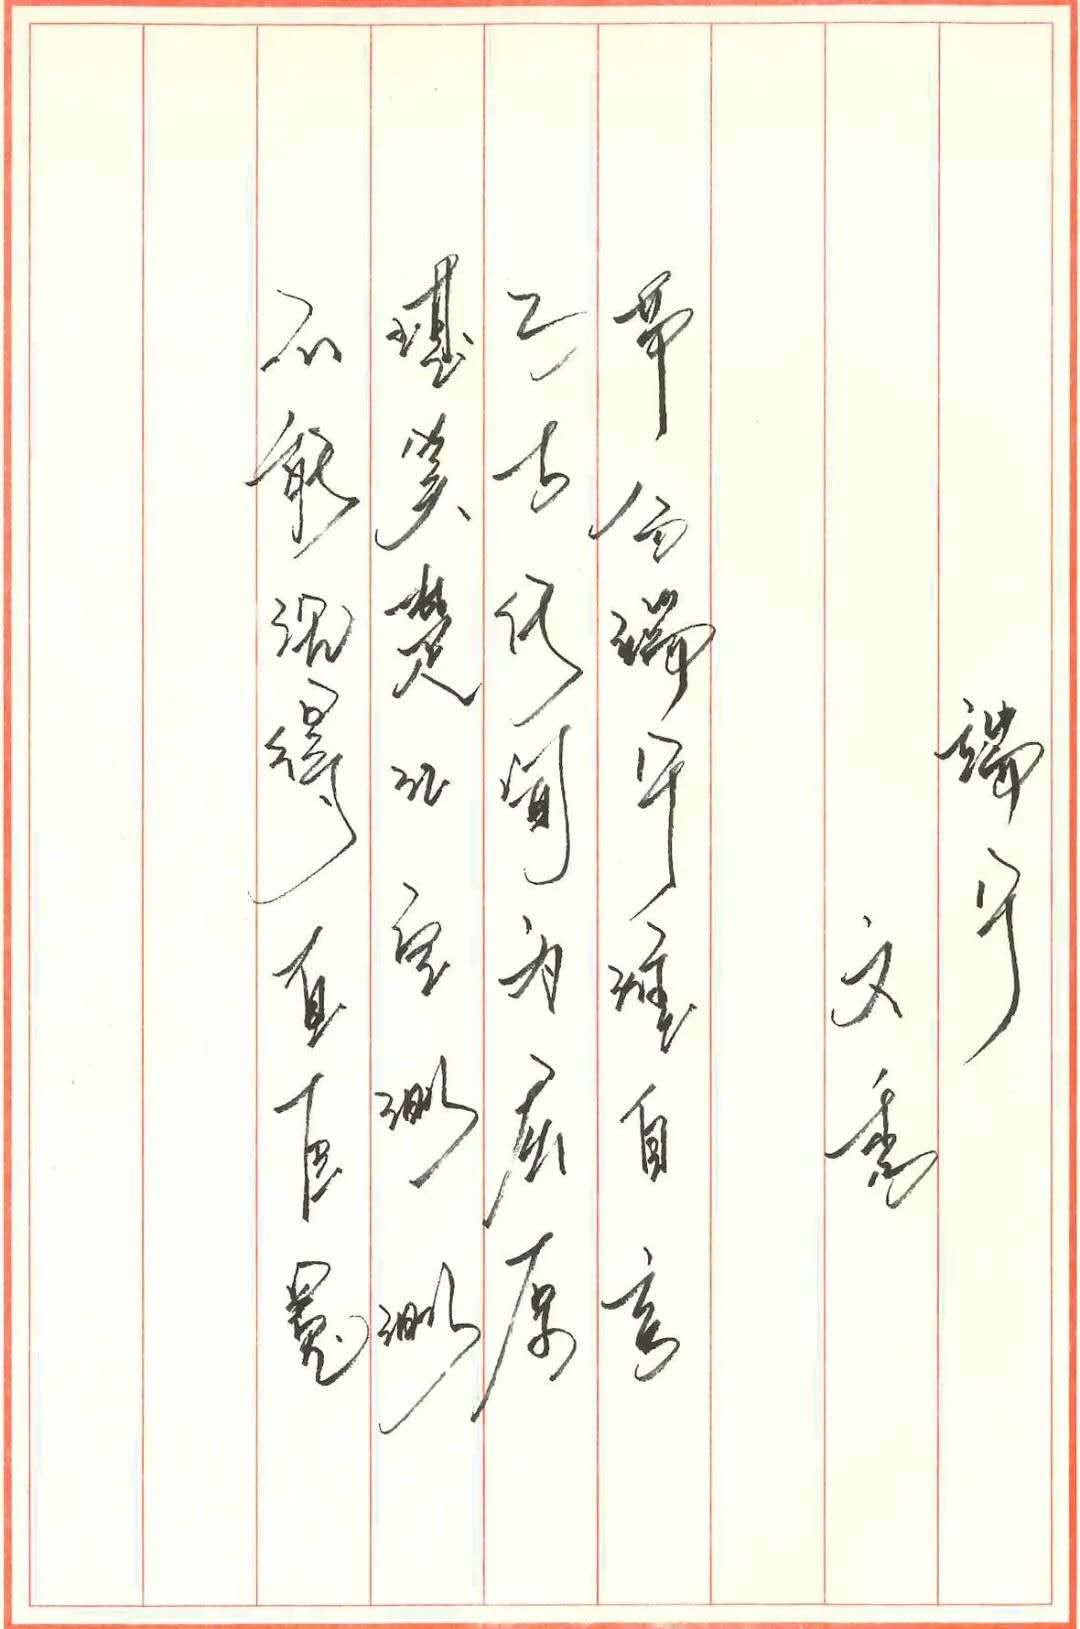 端午
文秀
节分端午谁自言
万古传闻为屈原
堪笑楚江空渺渺
不能洗得直臣冤